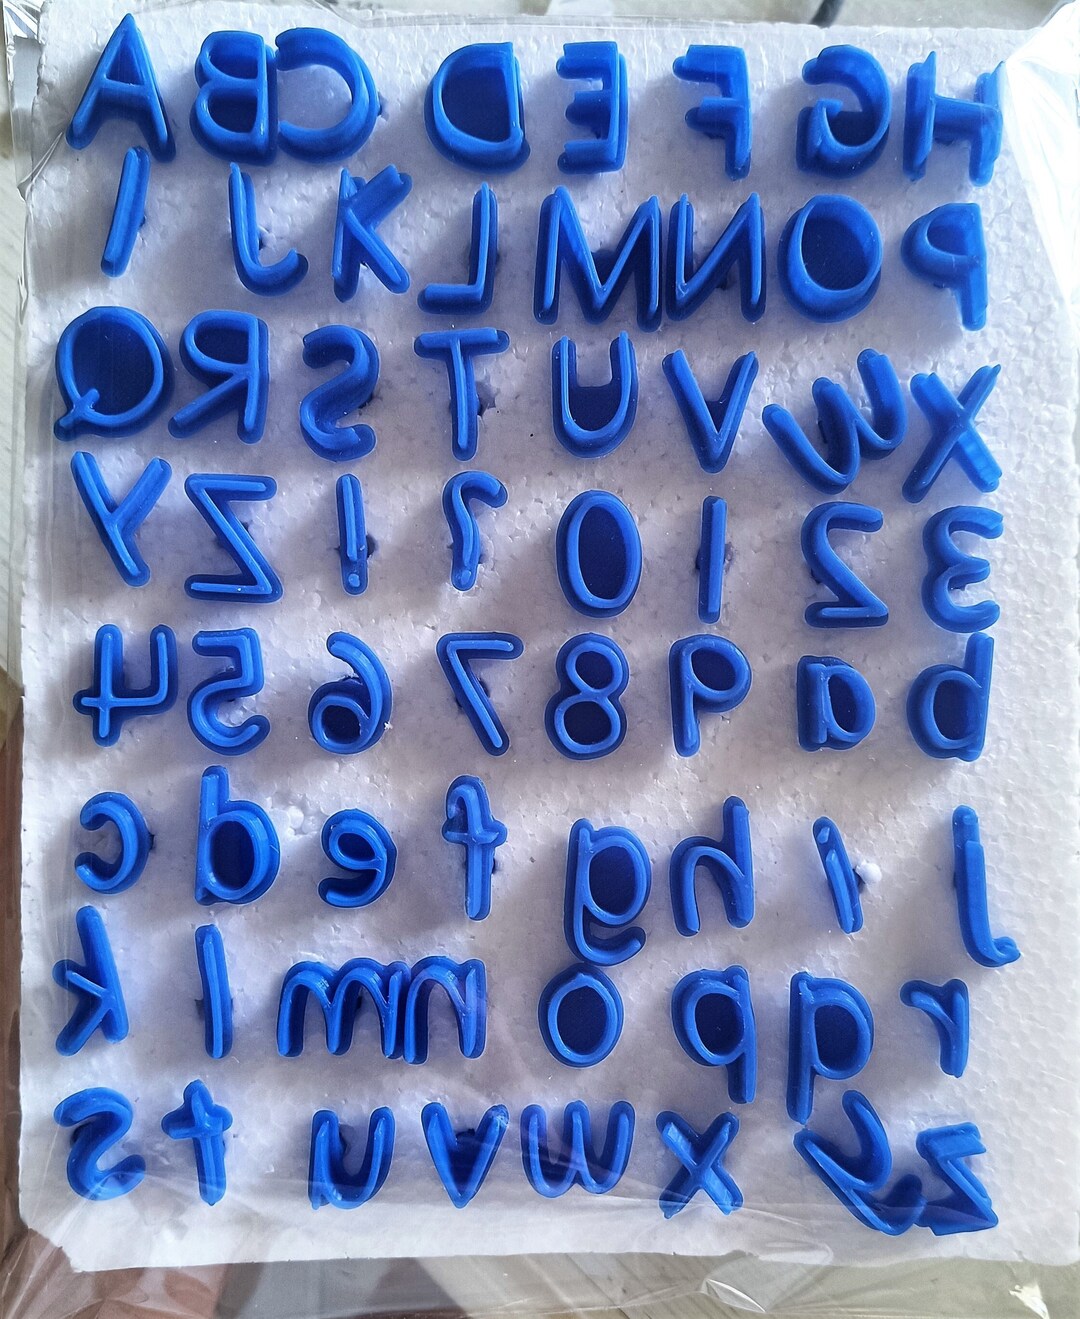 A B C D E F G H
I J K L M N O P
Q R S T U V W X
Y Z ! ? 0 1 2 3
4 5 6 7 8 9 a b
c d e f g h i j
k l m n o p q r
s t u v w x y z